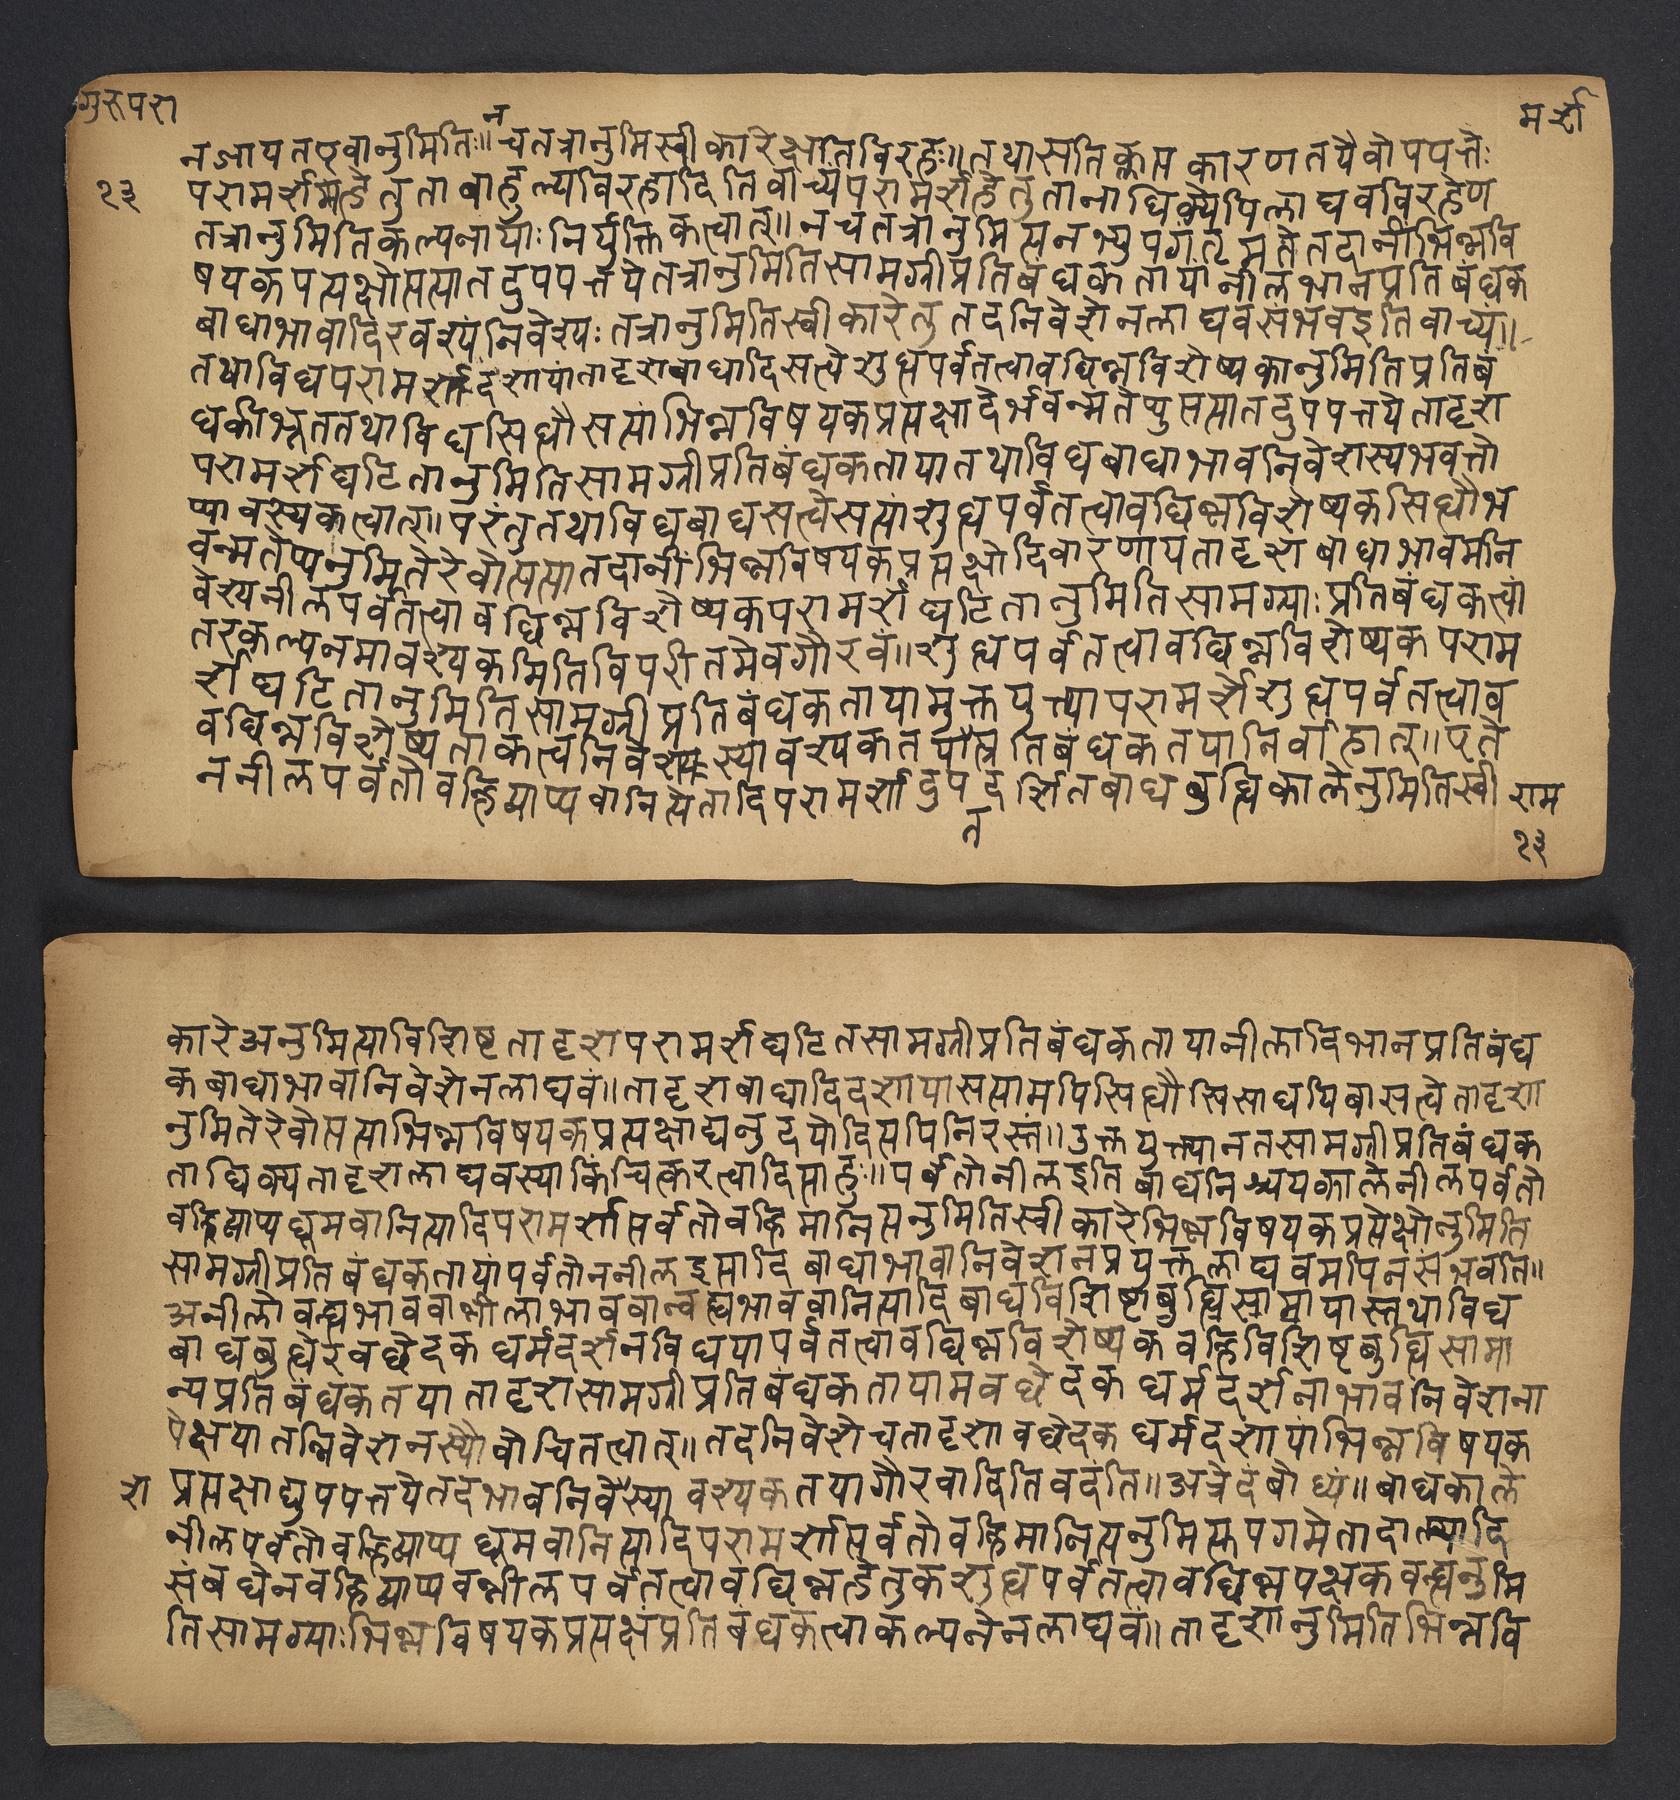 गुरूपरा
मर्शे
न जायत एवानुमितिः॥ न च तत्रानुमिस्वीकारे क्षतिविरहः॥ तथा सति कॢप्तकारणतयैवोपपत्तेः
२३
परामर्शमहेतुताबाहुल्यविरहादिति वाच्यं परामर्शहेतुतानाधिक्येपि लाघवविरहेण
तत्रानुमितिकल्पनायाः निर्युक्तिकत्वात्॥ न च तत्रानुमित्यनभ्युपगंतृमते तदानीं भिन्नवि
षयकप्रत्यक्षोत्पत्यातदुपपत्तये तत्रानुमितिसामग्रीप्रतिबंधकतायां नीलभानप्रतिबंधक
बाधाभावादिरवश्यं निवेश्यः तत्रानुमितिस्वीकारे तु तदनिवेशेन लाघवसंभव इति वाच्यं॥
तथाविधपरामर्शदशायां तादृशबाधादिसत्वे शुद्धपर्वतत्वावछिन्नविशेष्यकानुमितिप्रतिबं
धकीभूततथाविधसिद्धौ सत्यां भिन्नविषयकप्रत्यक्षादेर्भवन्मतेप्युत्पत्यातदुपपत्तये तादृश
परामर्शघटितानुमितिसामग्रीप्रतिबंधकतायां तथाविधबाधाभावनिवेशस्य भवत्तो
प्यावस्यकत्वात्॥ परंतु तथाविधबाधसत्वे सत्यां शुद्धपर्वतत्वावछिन्नविशेष्यकसिद्धौ भ
वन्मतेप्यनुमितेरेवोत्पत्यातदानीं भिन्नविषयकप्रत्यक्षादिवारणाय तादृशबाधाभावमनि
वेश्य नीलपर्वतत्वावछिन्नविशेष्यकपरामर्शघटितानुमितिसामग्र्याः प्रतिबंधकत्वां
तरकल्पनमावश्यकमिति विपरीतमेव गौरवं॥ शुद्धपर्वतत्वावछिन्नविशेष्यकपराम
र्शघटितानुमितिसामग्रीप्रतिबंधकतायामुक्तयुक्त्या परामर्शे शुद्धपर्वतत्वाव
वछिन्नविशेष्यताकत्वनिवेशस्यावश्यकतया प्रतिबंधकतयानिर्वाहात्॥ एते
न नीलपर्वतो वह्निव्याप्यवानित्येतादिपरामर्शादुपदर्शितबाधबुद्धिकालेनुमितिस्वी
राम
त
२३
कारे अनुमित्याविशिष्टतादृशपरामर्शघटितसामग्रीप्रतिबंधकतायां नीलादिभानप्रतिबंध
कबाधाभावानिवेशेन लाघवं॥ तादृशबाधादिदशायां सत्यामपि सिद्धौ सिसाधयिषासत्वे तादृशा
नुमितेरेवोत्पत्याभिन्नविषयकप्रत्यक्षाद्यनुदयादित्यपि निरस्तं॥ उक्तयुक्त्यानतसामग्रीप्रतिबंधक
ताधिक्यतादृशलाघवस्याकिंचित्करत्वादित्याहुः॥ पर्वतो नील इति बाधनिश्चयकाले नीलपर्वतो
वह्निव्याप्यधूमवानित्यादिपरामर्शात्पर्वतो वह्निमानित्यनुमितिस्वीकारे भिन्नविषयकप्रत्यक्षेनुमिति
सामग्रीप्रतिबंधकतायां पर्वतो न नील इत्यादि बाधाभावानिवेशनप्रयुक्तलाघवमपि न संभवति॥
अनीलो वह्न्यभाववान्नीलाभाववान्वह्न्यभाववानित्यादि बाधविशिष्टबुद्धिसामान्यास्तथाविध
बाधबुद्धेरवछेदकधर्मदर्शनविधया पर्वतत्वावछिन्नविशेष्यकवह्निविशिष्टबुद्धिसामा
न्यप्रतिबंधकतया तादृशसामग्रीप्रतिबंधकतायामवछेदकधर्मदर्शनाभावनिवेशना
पेक्षया तन्निवेशनस्यैवोचितत्वात्॥ तदनिवेशे च तादृशावछेदकधर्मदशायां भिन्नविषयक
श
प्रत्यक्षाद्युपपत्तये तदभावनिवेस्यावश्यकतया गौरवादिति वदंति॥ अत्रेदं बोध्यं॥ बाधकाले
नीलपर्वतो वह्निव्याप्यधूमवानित्यादिपरामर्शात्पर्वतो वह्निमानित्यनुमित्युपगमे तादात्म्यादि
संबंधेन वह्निव्याप्यवन्नीलपर्वतत्वावछिन्नहेतुकशुद्धपर्वतत्वावछिन्नपक्षकवह्न्यनुमि
तिसामग्र्याः भिन्नविषयकप्रत्यक्षप्रतिबंधकत्वाकल्पनेन लाघवं॥ तादृशानुमितिभिन्नवि